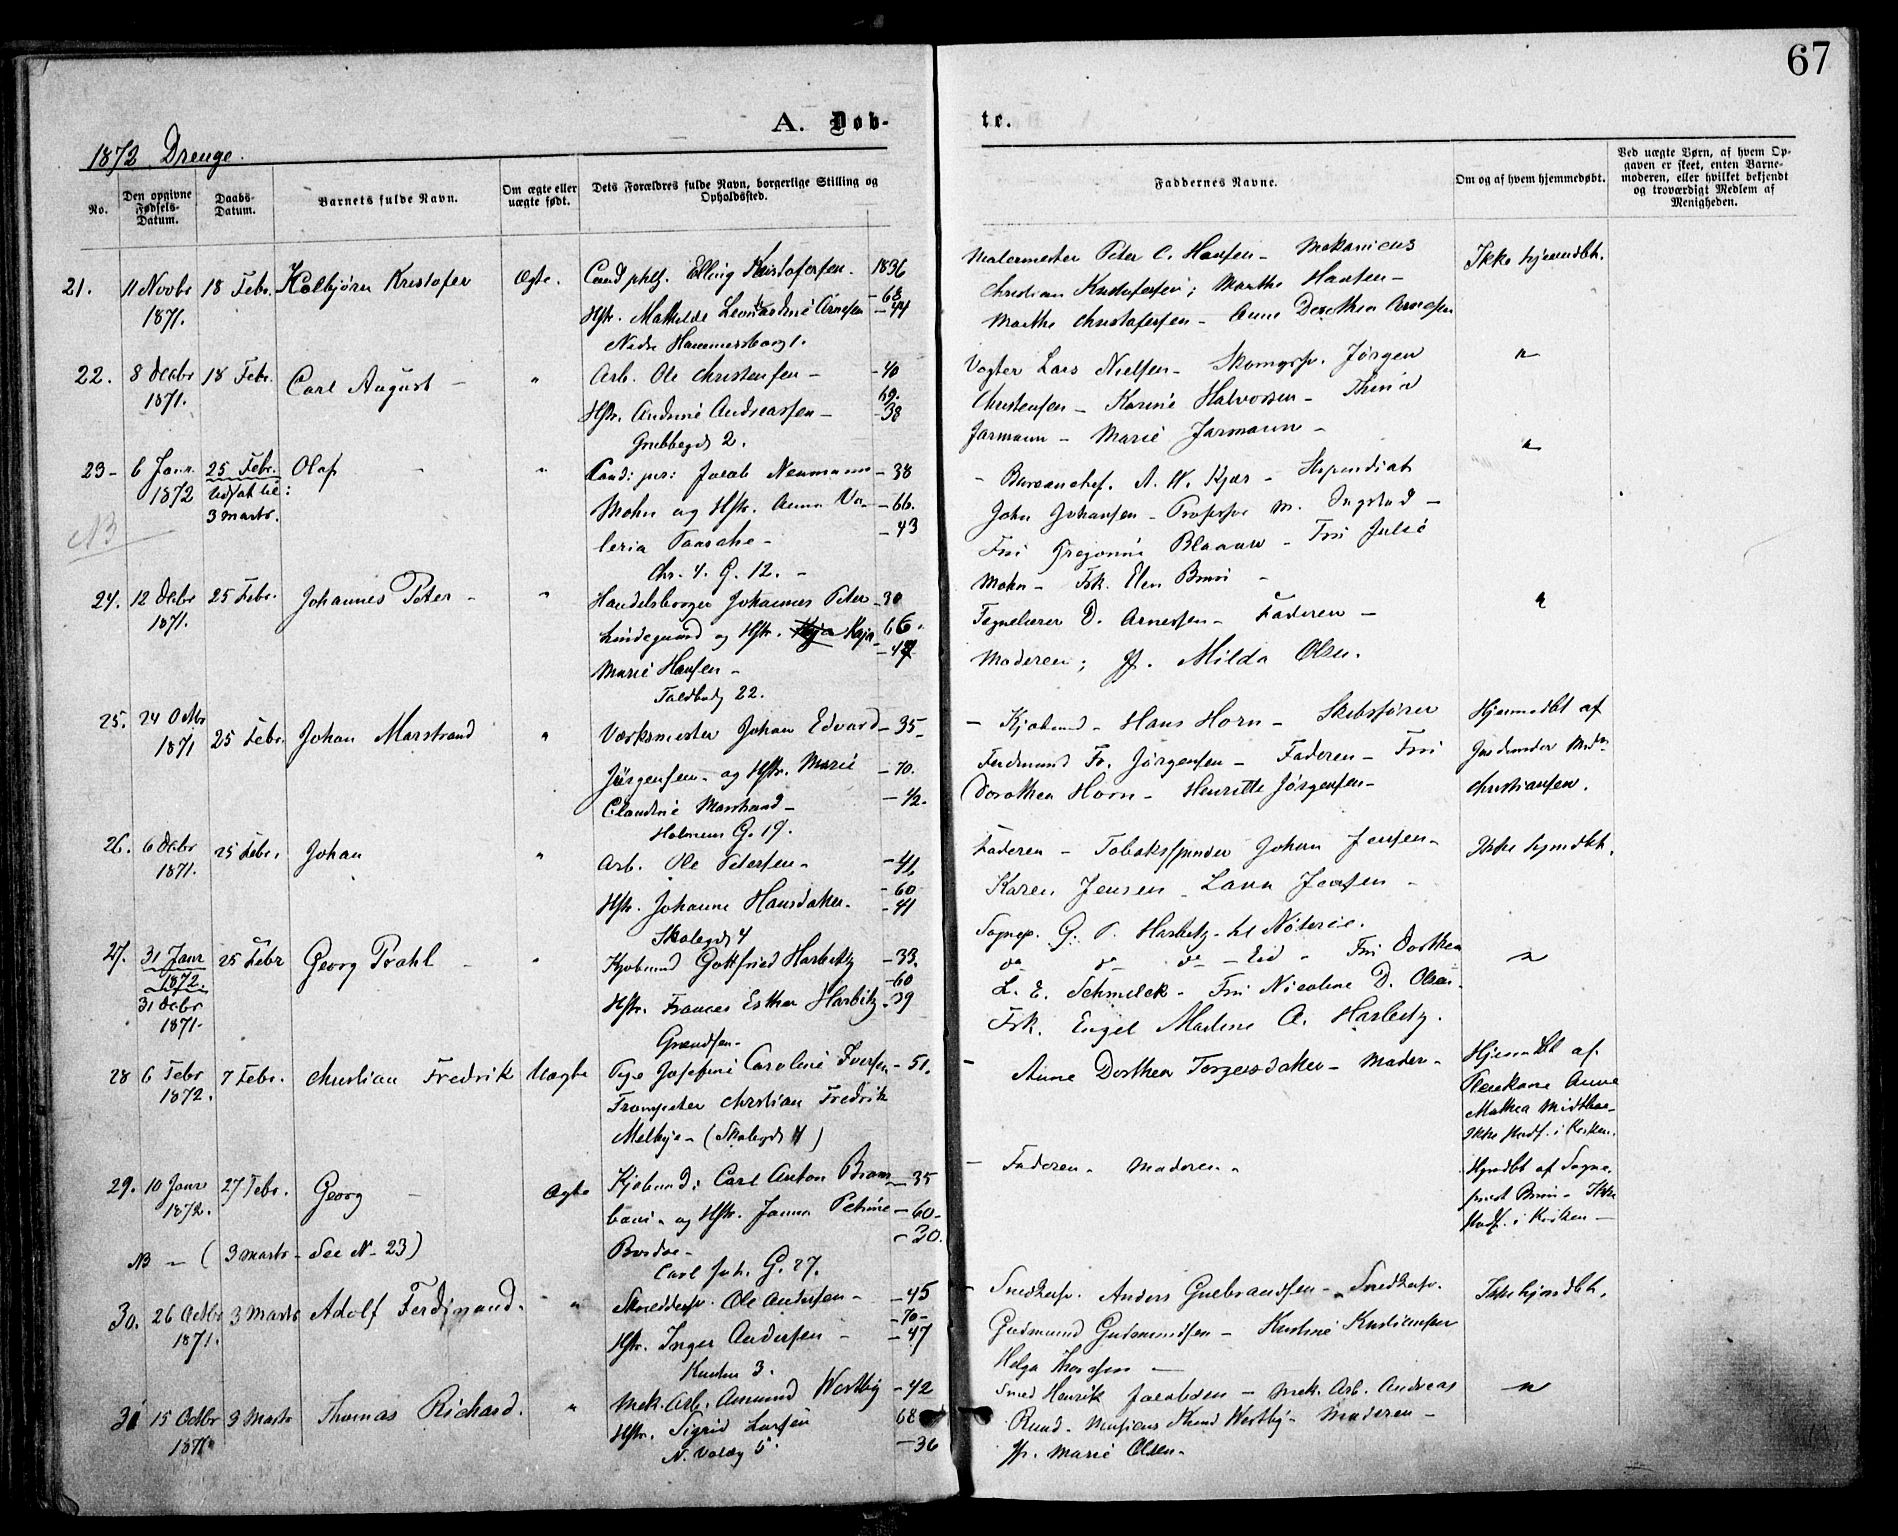 67
A. Døb-
te.
1872. Drenge.
No.
Den opgivne Fødsels-Datum.
Daabs-Datum.
Barnets fulde Navn.
Om ægte eller uægte født.
Dets Forældres fulde Navn, borgerlige Stilling og Opholdssted.
Faddernes Navne.
Om og af hvem hjemmedøbt.
Ved uægte Børn, af hvem Op-
gaven er skeet, enten Barne-
moderen, eller hvilket bekjendt
og troværdigt Medlem af
Menigheden.
21. 11 Novbr 1871. 18 Febr. Kolbjørn Kristofer Ægte.
Cand phil. Elling Kristofersen. 1836
- 68
Hstr. Mathilde Leonardine Arnesen - 44
Nedre Hammersborg 1.
Malermester Peter C. Hansen - Mekanicus
Christian Kristofersen; Marthe Hansen -
Marthe Christofersen - Anne Dorothea Arnesen
Ikke hjemdbt.
22. 8 Decbr 1871. 18 Febr. Carl August - "
Arb. Ole Christensen - - 40
69.
Hstr. Andrine Andreassen - - 38
Grubbegd 2.
Vogter Lars Nielsen - Skomgsv. Jørgen
Christensen - Karine Halvorsen - Thrine
Jarmann - Marie Jarmann -
"
23 - 6 Janr. 1872 25 Febr. Udsat til: 3 Marts. Olaf - "
Cand: jur: Jacob Neumann - 38
Mohn og Hstr. Anna Va- - 66.
leria Paasche - - 43
Chr. 4. G. 12. -
- Bureauchef. A. N. Kjær - Stipendiat
John Johansen - Professor M. Ingstad -
Fru Gregorine Blaauw - Fru Julie
Mohn - Frk. Elen Bruun -
"
NB
24. 12 Decbr 1871. 25 Febr. Johannes Peter - "
Handelsborger Johannes Peter - 30
Lindegaard og Hstr. Kaja 66.
Marie Hansen -
Toldbodg 22.
Tegnelærer D. Arnesen - Faderen -
Moderen; Jf. Milda Olsen.
"
25. 24 Octbr 1871 25 Febr. Johan Marstrand "
Værksmester Johan Edvard - 35
Jørgensen - og Hstr. Marie - 70.
Claudine Marstrand - - 42.
Holmens G. 19.
- Kjøbmd - Hans Horn - Skibsfører
Ferdinand Fr. Jørgensen - Faderen - Fru
Dorothea Horn - Henriette Jørgensen -
Hjemmedbt af
Jordmoder Mdm
Christiansen.
26. 6 Decbr 1871. 25 Febr. Johan "
Arb. Ole Petersen - - 41
- 60
Hstr. Johanne Hansdatter. - 41
Skolegd 4
Faderen - Tobakspinder Johan Jensen -
Karen Jensen - Laura Jensen -
Ikke hjemdbt.
27. 31 Janr 1872. 31 Decbr 1871. 25 Febr Georg Prahl - "
Kjøbmd Gottfried Harbitz - 33.
- 60
Hstr. Frances Esther Harbitz - 39
Grændsen -
Sognep. G. P. Harbitz til Nøterøe.
do do do - Eid - Fru Dorthea
L. E. Schmelck - Fru Nicoline D. Olsen.
Frk. Engel Marline A. Harbitz.
"
28 6 Febr 1872. 7 Febr. Christian Fredrik Uægte
Pige Josefine Caroline Iversen - 51.
Trompeter Christian Fredrik
Melbye - (Skolegd 4)
- Anne Dorthea Torgersdatter - Moder -
Hjemdbt af
Pleiekone Anne
Mathea Midthus -
Ikke Konf. i Kirken.
29. 10 Janr 1872. 27 Febr. Georg - Ægte
Kjøbmd: Carl Anton Bram- - 35
bani - og Hstr. Janna Petrine - 60 -
Borsdoe - - 30.
Carl Joh. G. 27.
- Faderen - Moderen -
Hjemdbt af Sogne-
prest Bruun - Ikke
Konf. i Kirken -
NB - (3 Marts - See N - 23)
30. 26 Octbr 1871. 3 Marts Adolf Ferdinand. "
Skreddersv. Ole Andersen - - 45
- 70 -
Hstr. Inger Andersen - - 47
Kuuden 3.
- Snedkersv. Anders Gulbrandsen - Snedkersv.
Gudmund Gudmundsen - Kristine Kristiansen
Helga Thoresen -
Ikke hjemdbt.
31 15 Octbr 1871. 3 Marts Thomas Richard. "
Mek. Arb. Amund Westby - 42
Hstr. Sigrid Larsen 68
N. Voldg 5. - 36
Smed Henrik Jacobsen - Mek. Arb. Andreas
Ruud - Musicus Knud Westby - Moderen -
Jf. Marie Olsen -
"